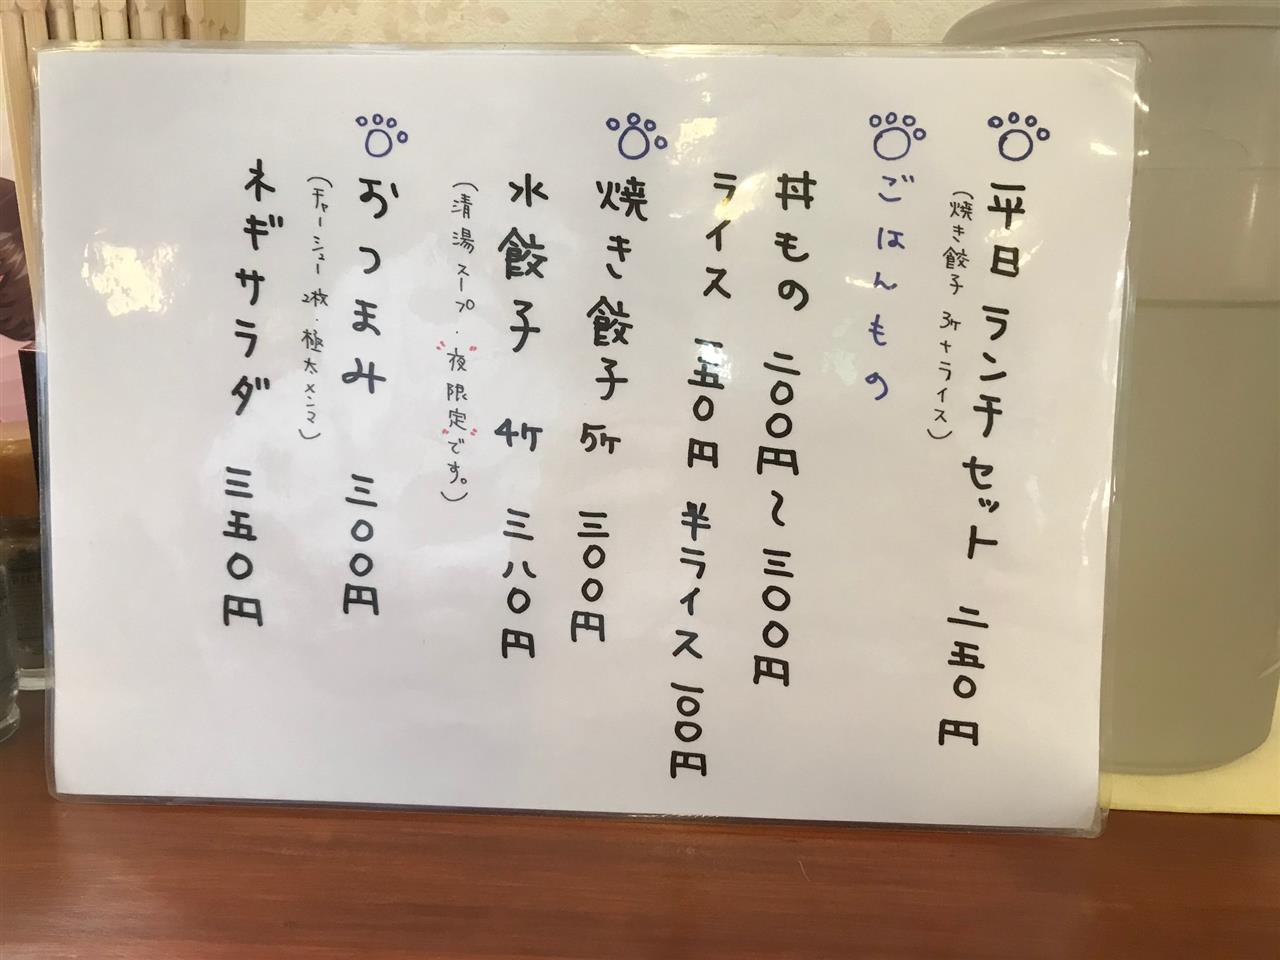 平日ランチセット 二五〇円
(焼き餃子 3ヶ+ライス)
ごはんもの
丼もの 二〇〇円〜三〇〇円
ライス 一五〇円 半ライス 一〇〇円
焼き餃子 5ヶ 三〇〇円
水餃子 4ヶ 三八〇円
(清湯スープ・夜限定です。)
おつまみ 三〇〇円
(チャーシュー2枚・極太メンマ)
ネギサラダ 三五〇円